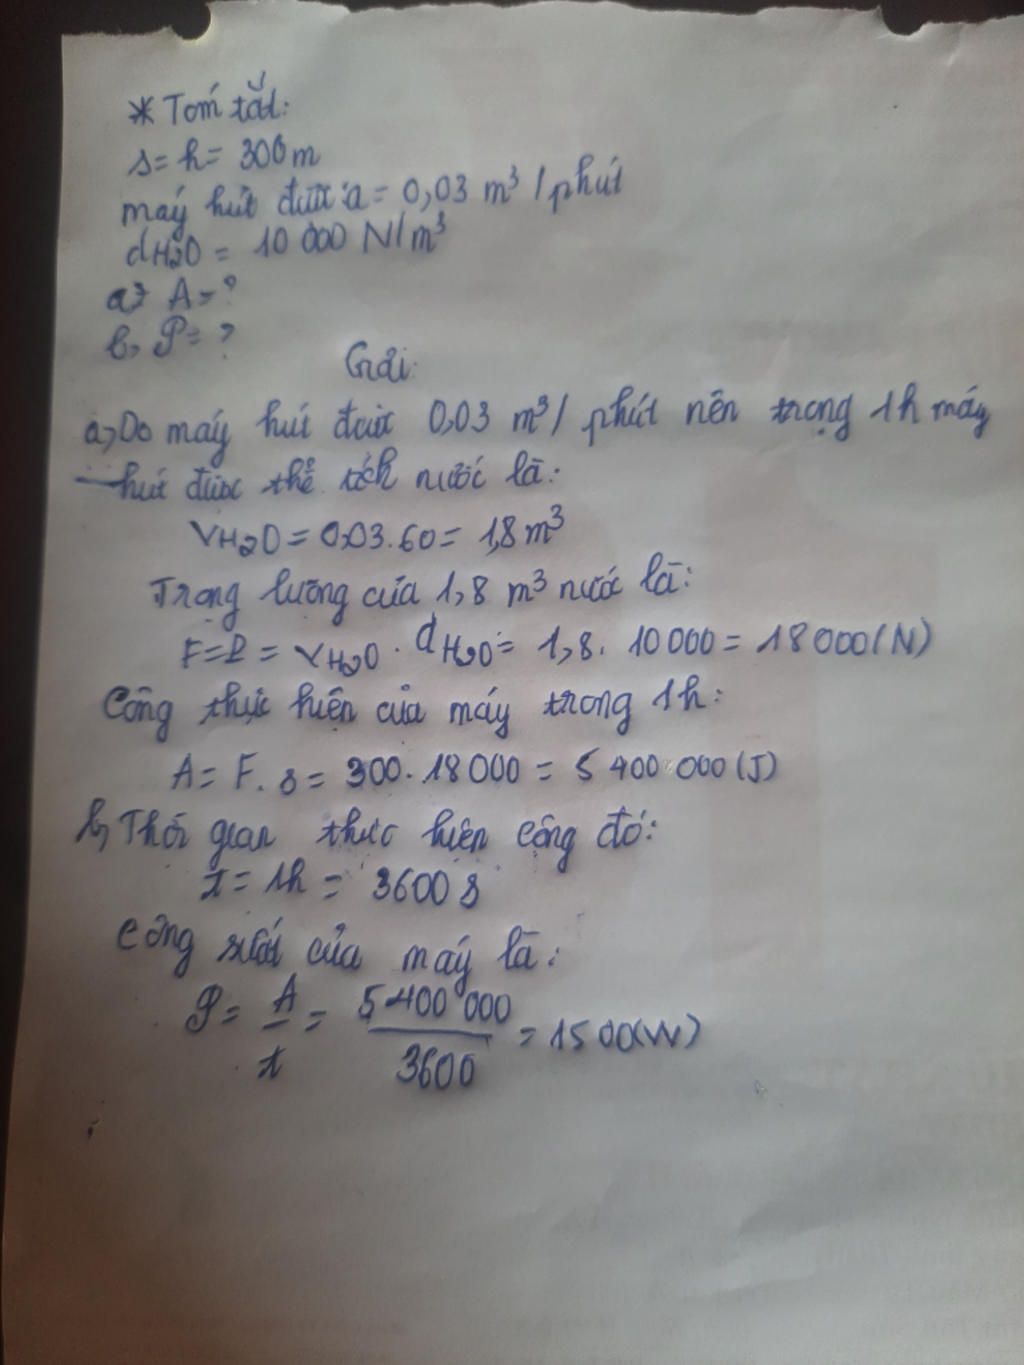 * Tóm tắt:
s = h = 300m
máy hút được: a = 0,03 m³ / phút
dH₂O = 10 000 N/m³
a, A = ?
b, P = ?
Giải:
a, Do máy hút được 0,03 m³ / phút nên trọng 1h máy
hút được thể tích nước là:
VH₂O = 0,03.60 = 1,8 m³
Trọng lượng của 1,8 m³ nước là:
F=P = VH₂O . dH₂O = 1,8. 10 000 = 18 000 (N)
Công thực hiện của máy trong 1h:
A = F. s = 300. 18 000 = 5 400 000 (J)
b, Thời gian thực hiện công đó:
t = 1h = 3600 s
Công suất của máy là:
P = A/t = 5 400 000/3600 = 1500(W)